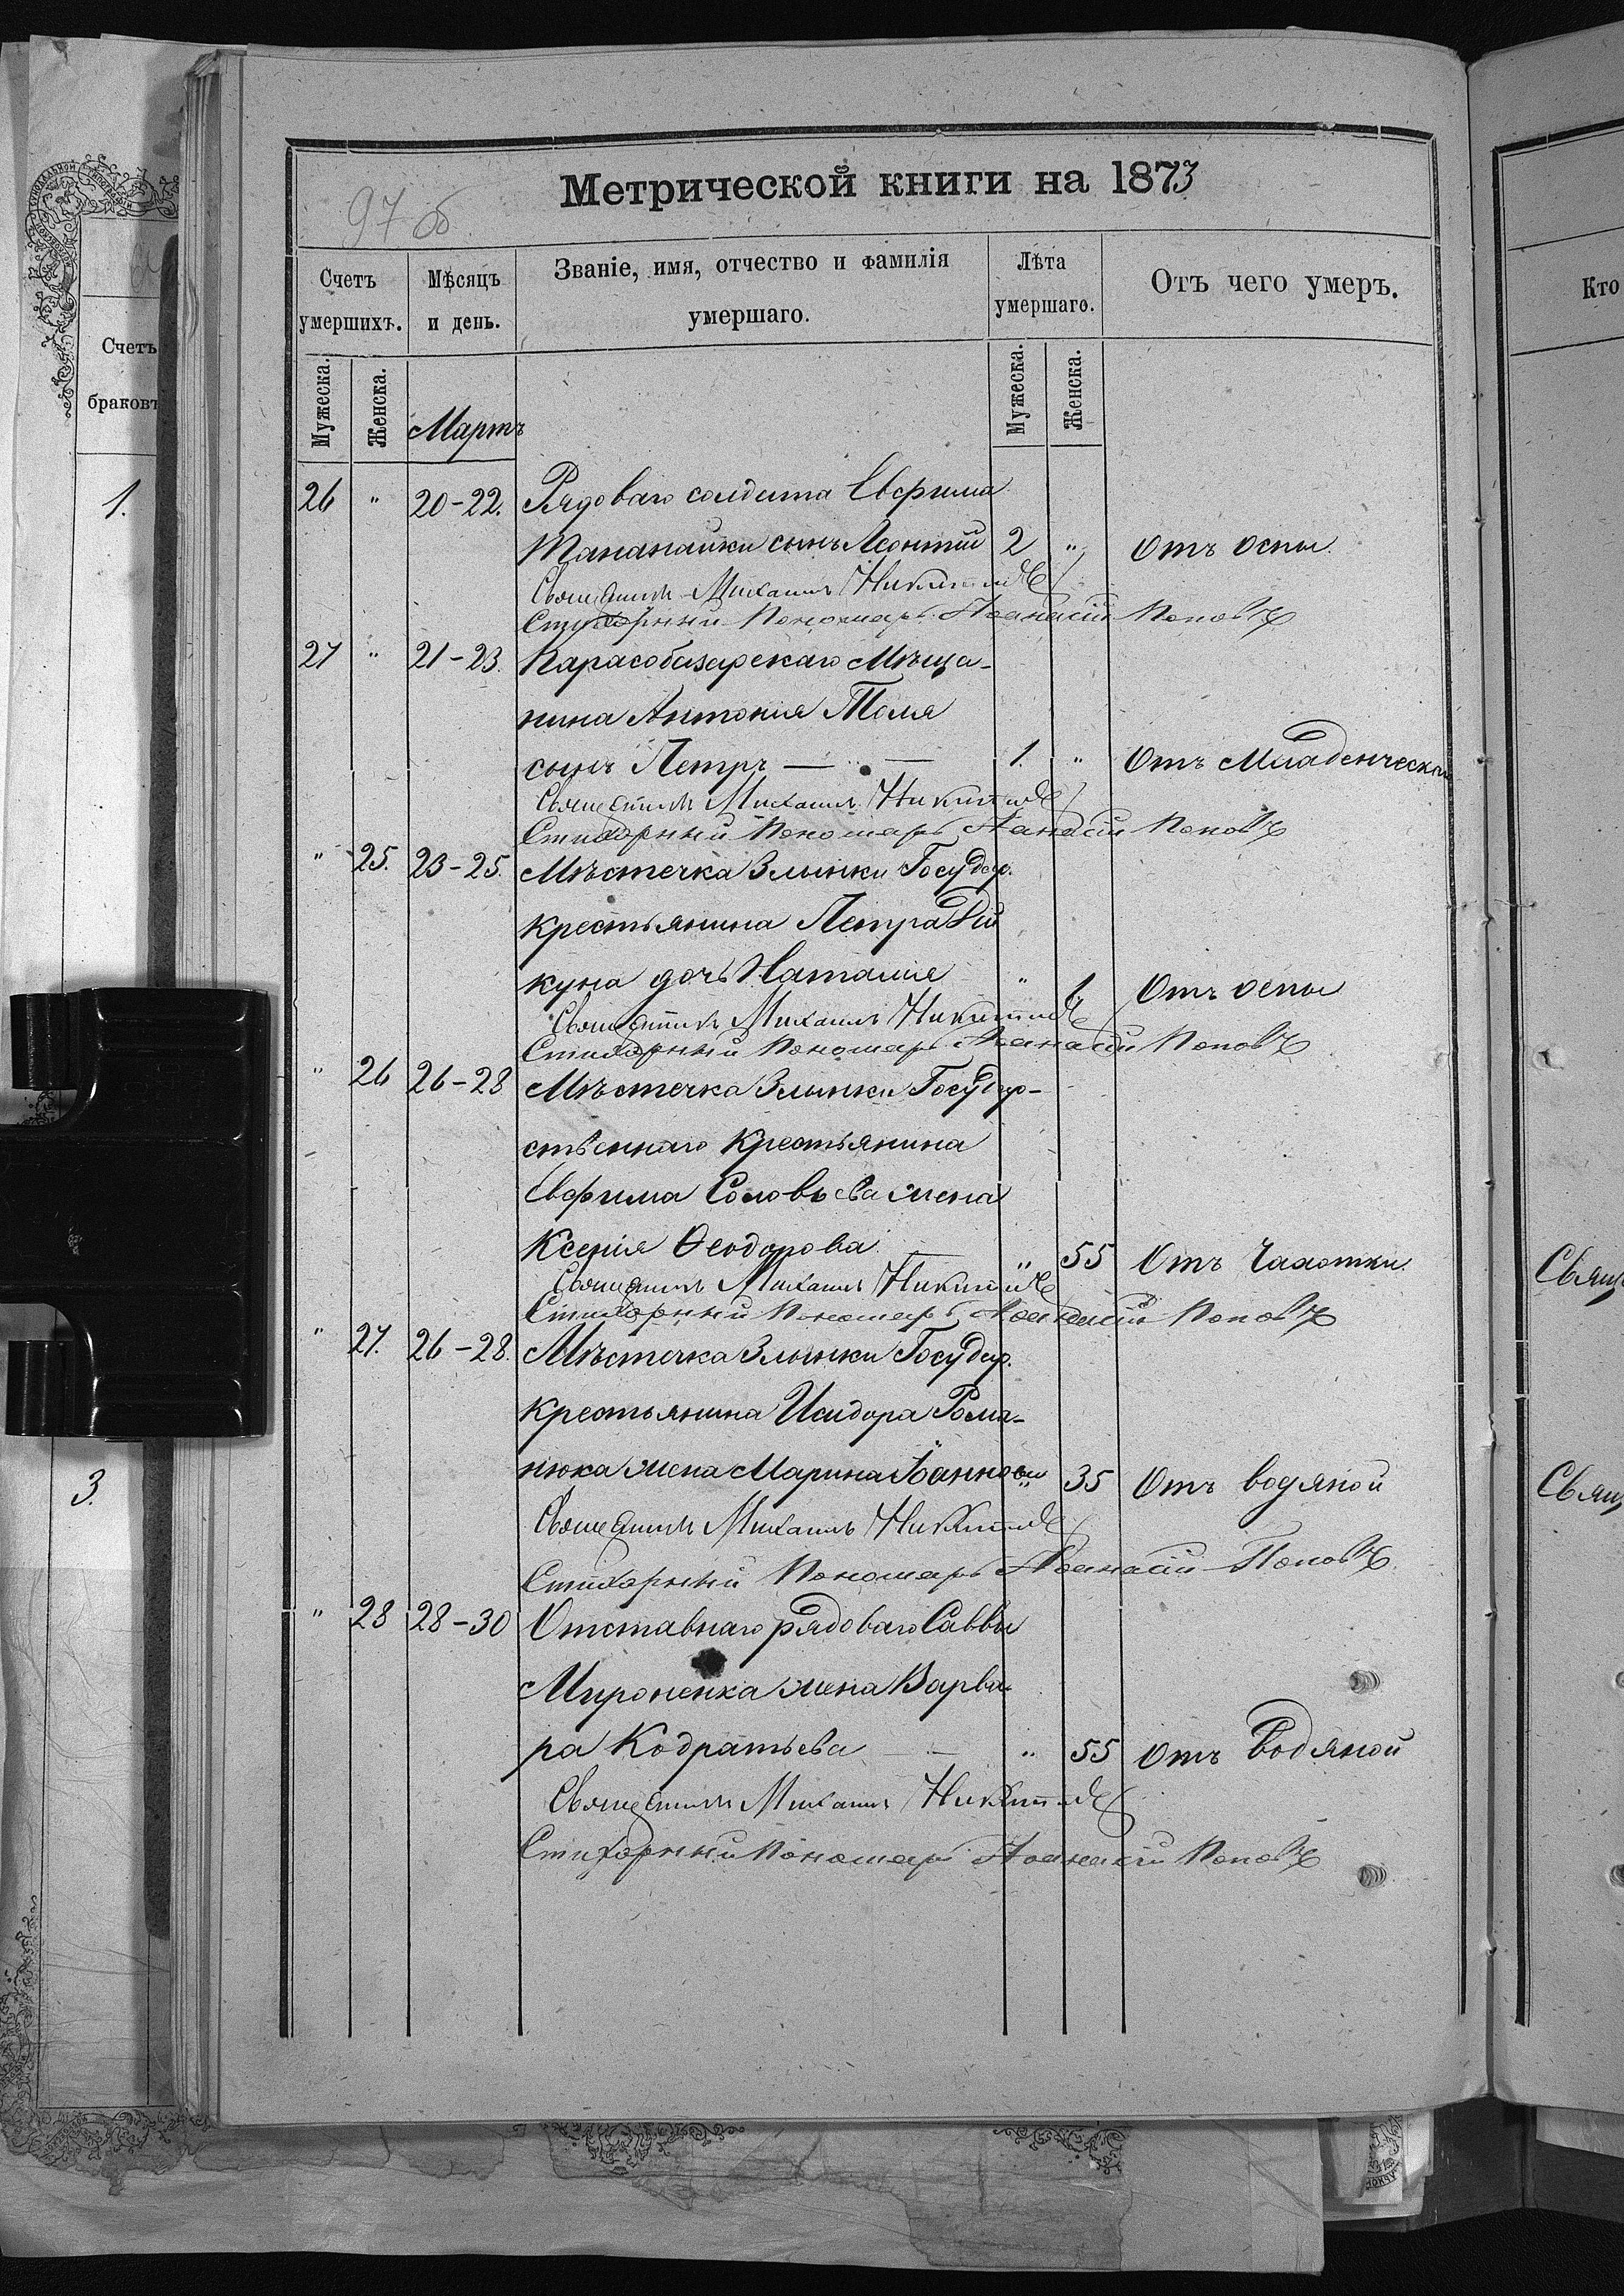 Метрической книги на 1873
97 об
Счетъ умершихъ.
Мѣсяцъ и день.
Званіе, имя, отчество и фамилія умершаго.
Лѣта умершаго.
Отъ чего умеръ.
Мужеска. Женска. Мартъ Мужеска. Женска.
26 " 20-22. Рядоваго солдата Евфима
Тананайки сынъ Леонтій 2 " Отъ оспы.
Священникъ Михаилъ
Стихарный Пономарь Аѳанасій Поповъ
27 " 21-23. Карасобазарскаго Мѣща-
нина Антонія Толя
сынъ Петръ — " — 1. " Отъ Младенческой
Священникъ Михаилъ
Стихарный Пономарь Аѳанасій Поповъ
" 25. 23-25. Мѣстечка Злынки Государ.
крестьянина Петра Ди
куна дочь Наталія " 1 Отъ оспы
Священникъ Михаилъ
Стихарный Пономарь Аѳанасій Поповъ
" 26 26-28 Мѣстечка Злынки Государ-
ственнаго Крестьянина
Евфима Соловьева жена
Ксенія Ѳеодорова " 55 Отъ Чахотки
Священникъ Михаилъ
Стихарный Пономарь Аѳанасій Поповъ
" 27. 26-28. Мѣстечка Злынки Государ.
крестьянина Исидора Рома-
нюка жена Марина Іоаннова " 35 Отъ водяной
Священникъ Михаилъ
Стихарный Пономарь Аѳанасій Поповъ
" 28 28-30 Отставнаго рядоваго Саввы
Мироненка жена Варва-
ра Кодратьева — " 55 отъ Водяной
Священникъ Михаилъ
Стихарный Пономарь Аѳанасій Поповъ
Счетъ
браковъ
1.
3.
Кто
Свящ
Свящ